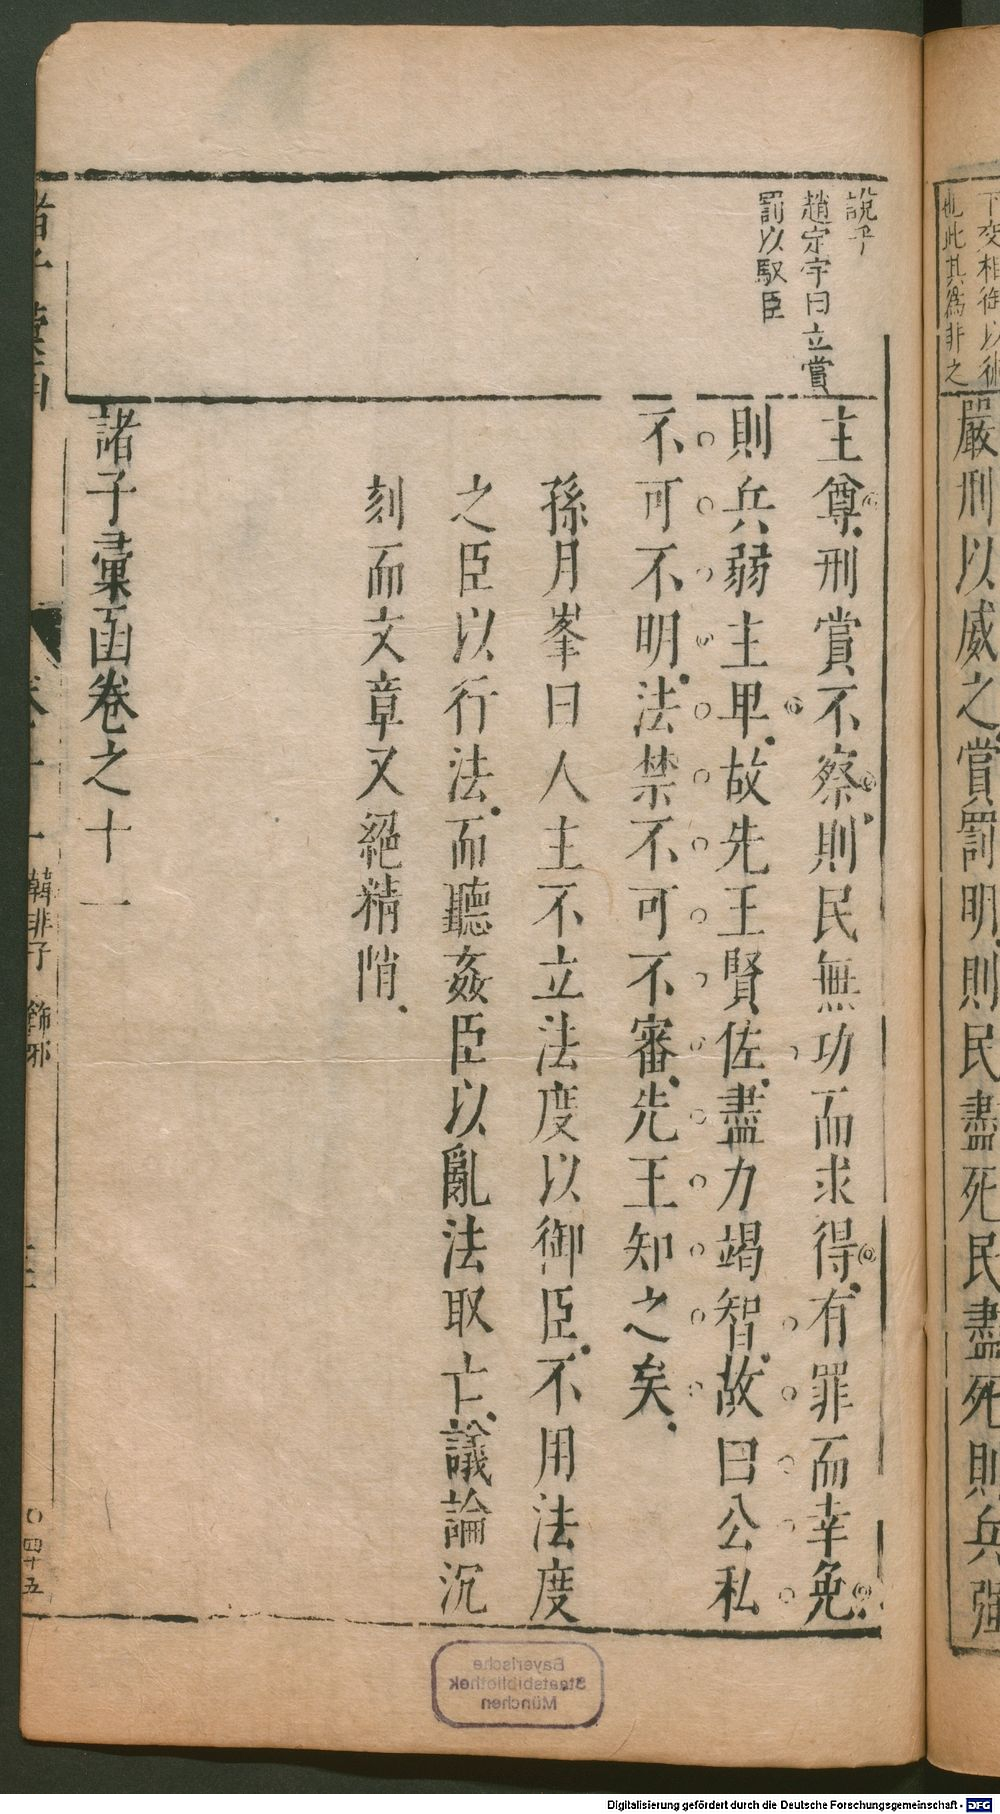 下交相待以術
也此其爲非之
嚴刑以威之賞罰明則民盡死民盡死則兵强
說乎
趙定宇曰立賞
罰以馭臣
主尊刑賞不察則民無功而求得有罪而幸免
則兵弱主卑故先王賢佐盡力竭智故曰公私
不可不明法禁不可不審先王知之矣
孫月峯曰人主不立法度以御臣不用法度
之臣以行法而聽姦臣以亂法取亡議論沉
刻而文章又絕精悄
諸子彙函卷之十一
諸子彙函 卷十一 韓非子 飾邪
〇四十五
Bayerische
Staatsbibliothek
München
Digitalisierung gefördert durch die Deutsche Forschungsgemeinschaft - DFG